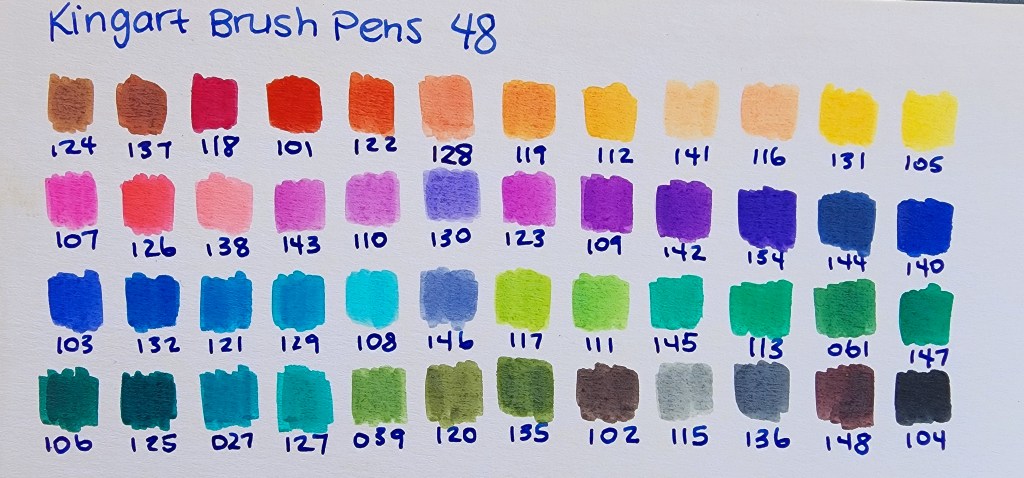 Kingart Brush Pens 48
124 137 118 101 122 128 119 112 141 116 131 105
107 126 138 143 110 130 123 109 142 134 144 140
103 132 121 129 108 146 117 111 145 113 061 147
106 125 027 127 039 120 135 102 115 136 148 104